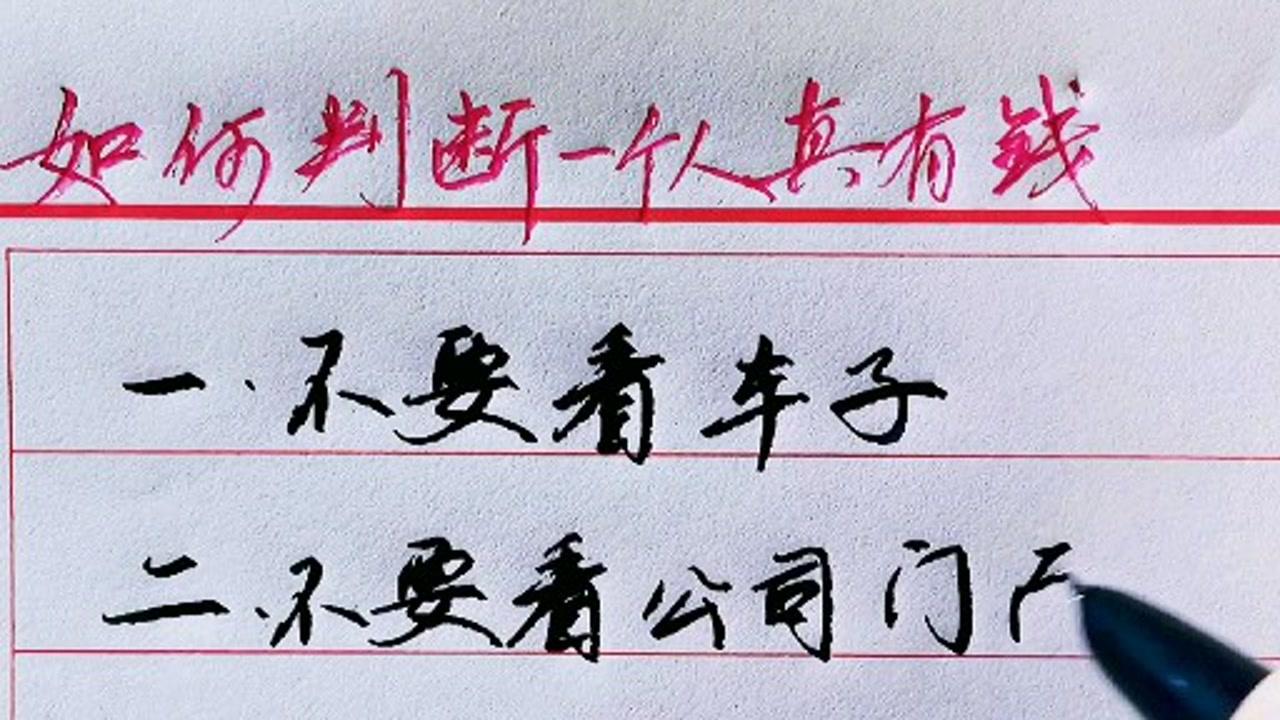 如何判断一个人真有钱
一.不要看车子
二.不要看公司门